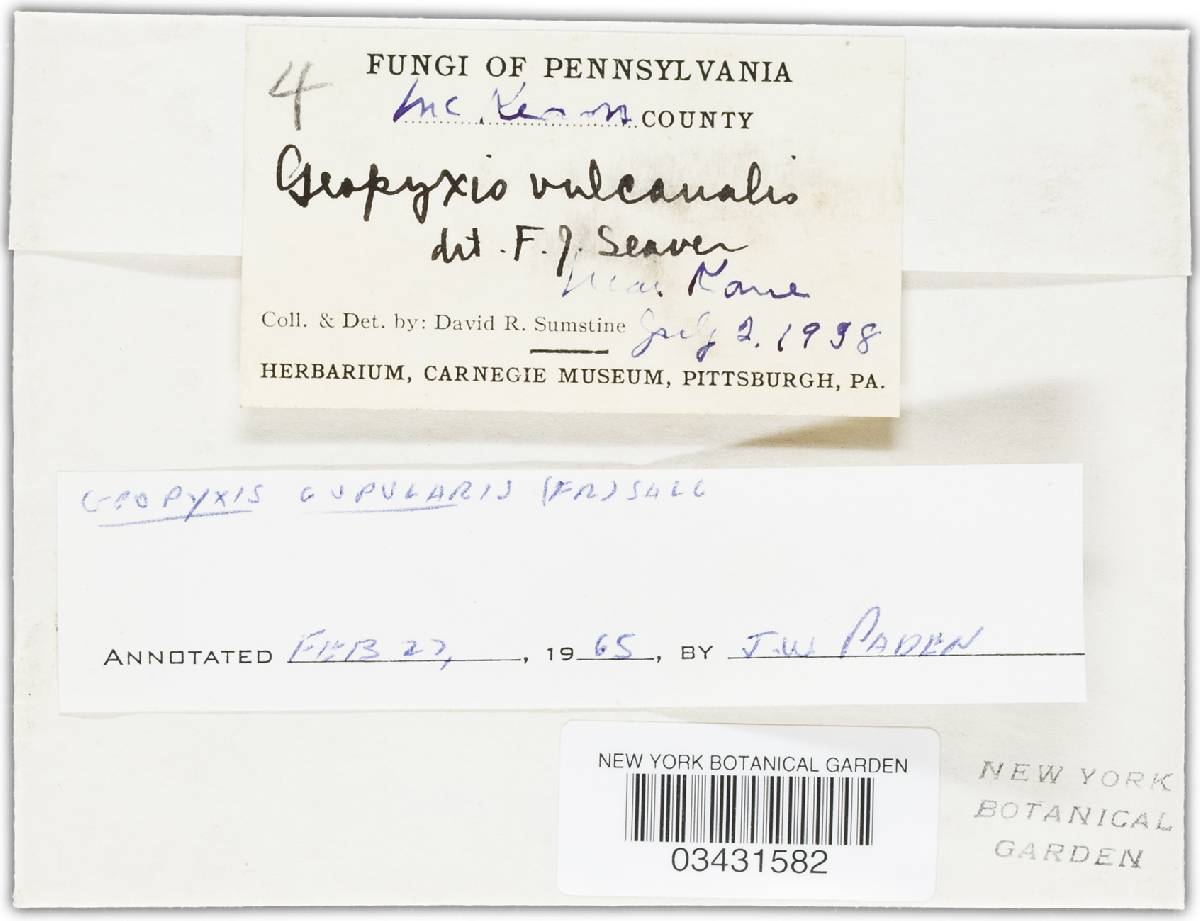 4
FUNGI OF PENNSYLVANIA
McKean COUNTY
Geopyxis vulcanalis
det. F. J. Seaver
near Kane
Coll. & Det. by: David R. Sumstine July 2. 1938
HERBARIUM, CARNEGIE MUSEUM, PITTSBURGH, PA.
GEOPYXIS CUPULARIS (FR) SACC
ANNOTATED FEB 27, , 1965, BY J.W. PADEN
NEW YORK BOTANICAL GARDEN
03431582
NEW YORK
BOTANICAL
GARDEN